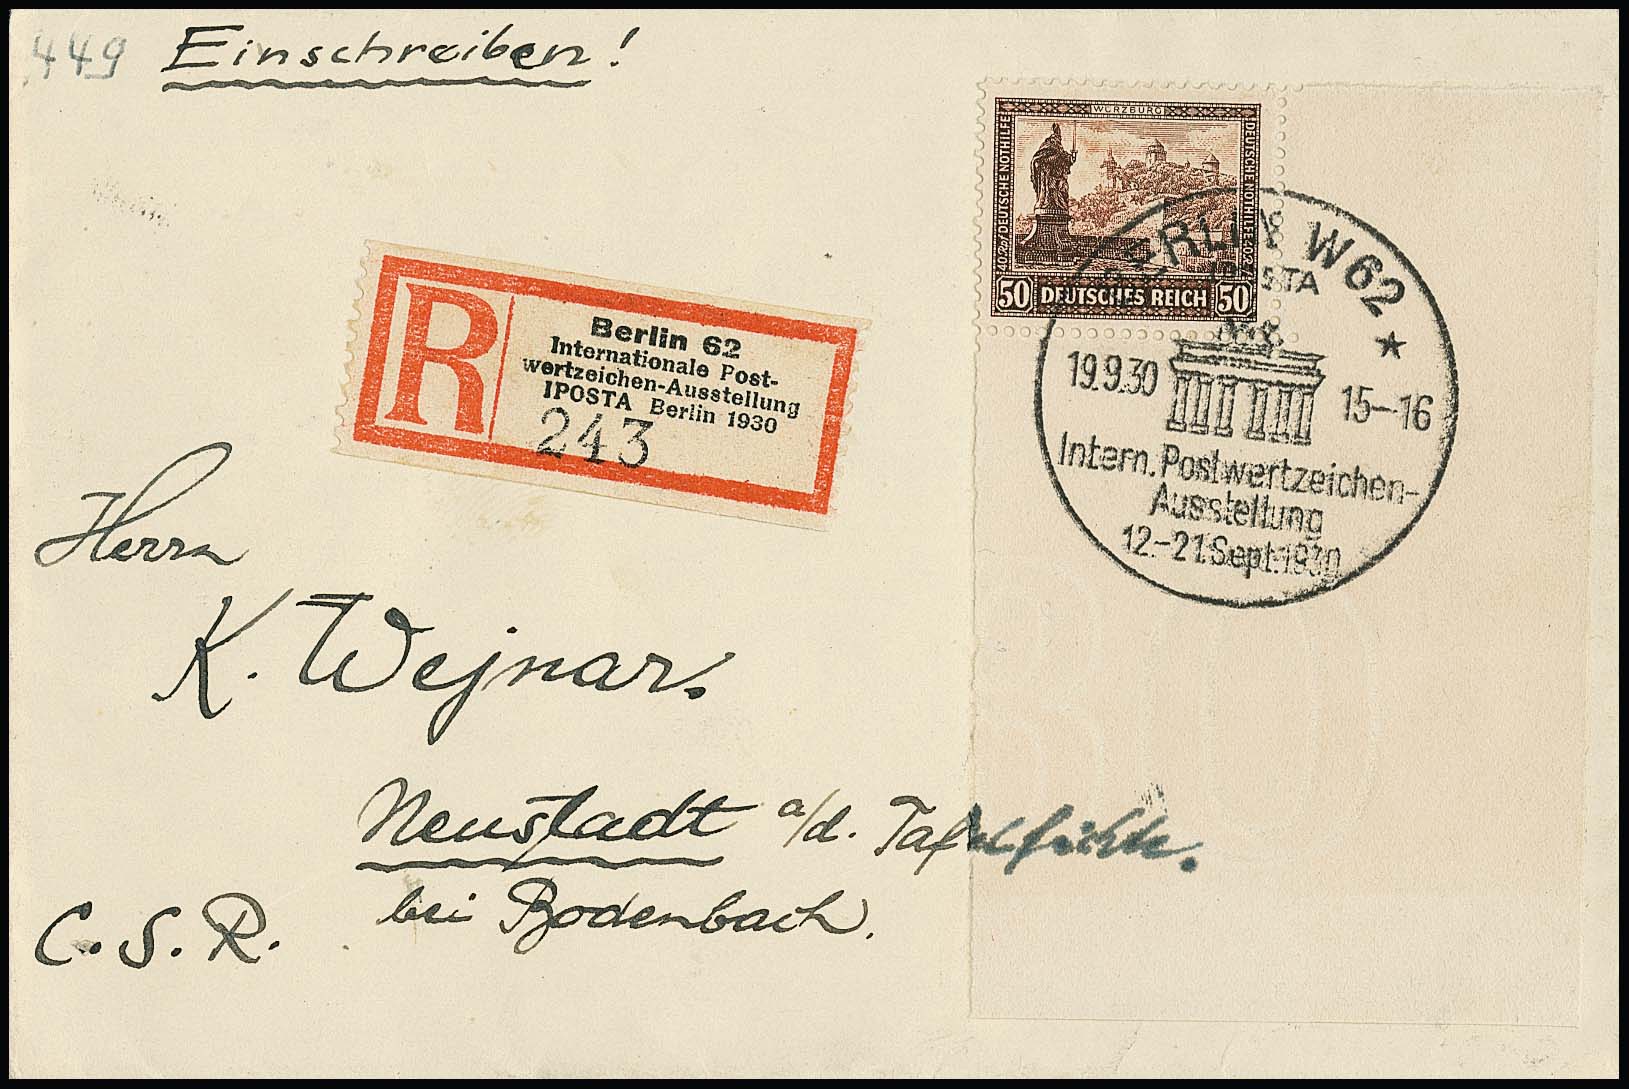 449
Einschreiben!
WÜRZBURG
DEUTSCHE NOTHILFE
DEUTSCHE NOTHILFE
50 DEUTSCHES REICH 50
BERLIN W62
IPOSTA
19.9.30 15-16
Intern. Postwertzeichen-
Ausstellung
12.-21.Sept.1930
R
Berlin 62
Internationale Post-
wertzeichen-Ausstellung
IPOSTA Berlin 1930
243
Herrn
K. Wejnar.
Neustadt a/d. Tafelfichte.
bei Bodenbach.
C.S.R.